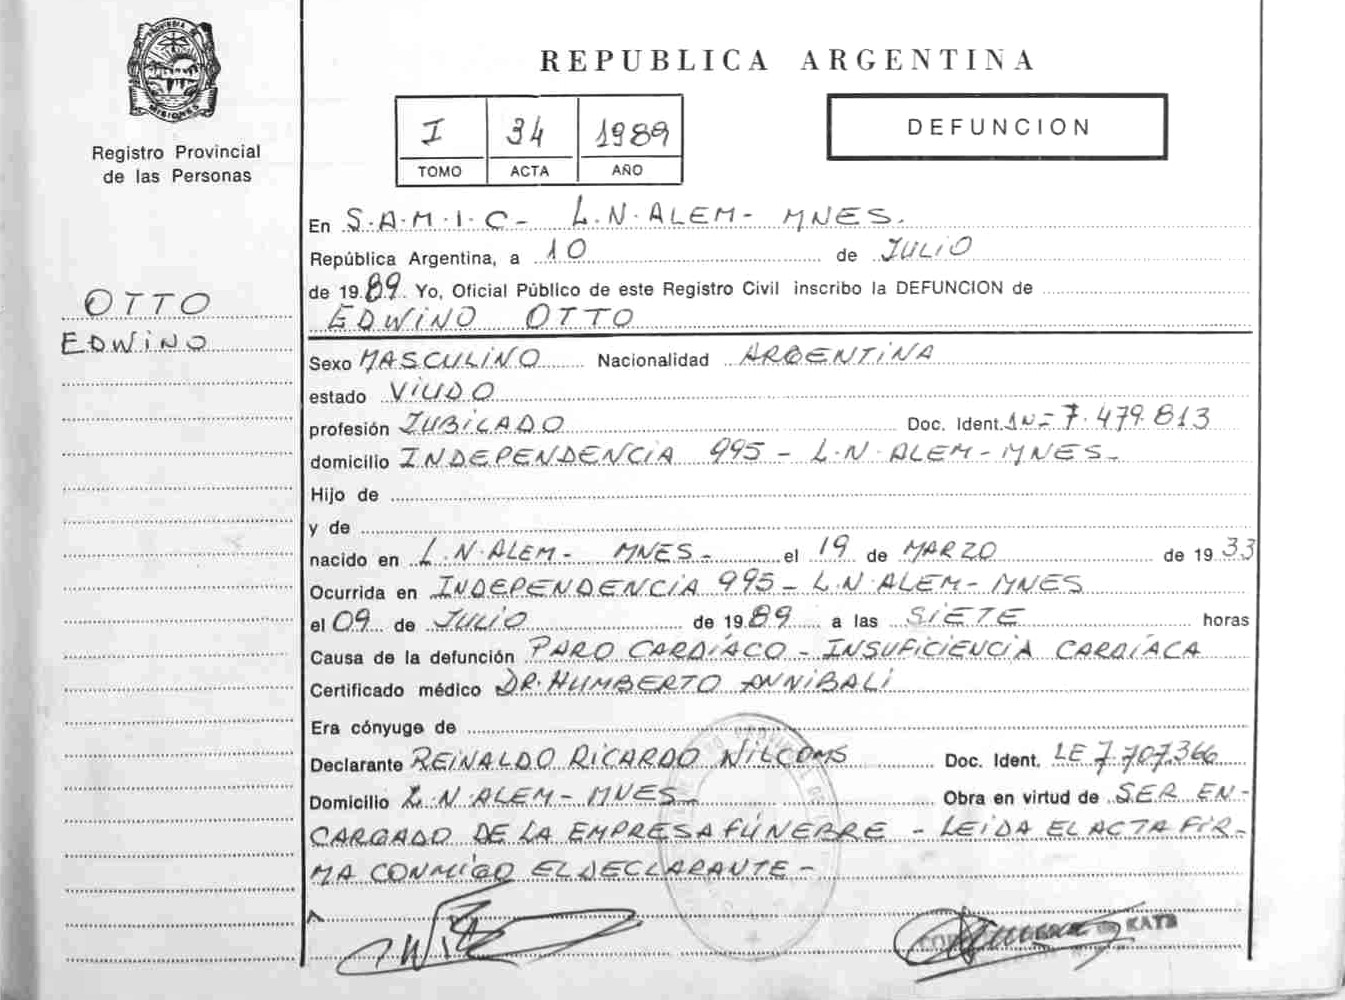 PROVINCIA DE
MISIONES
Registro Provincial
de las Personas
OTTO
EDWINO
REPUBLICA ARGENTINA
I 34 1989
TOMO ACTA AÑO
DEFUNCION
En S.A.M.I.C- L.N.ALEM- MNES.
República Argentina, a 10 de JULIO
de 1989. Yo, Oficial Público de este Registro Civil inscribo la DEFUNCION de
EDWINO OTTO
Sexo MASCULINO Nacionalidad ARGENTINA
estado VIUDO
profesión JUBILADO Doc. Ident. 7.479.813
domicilio INDEPENDENCIA 995 - L.N.ALEM-MNES-
Hijo de
y de
nacido en L.N.ALEM- MNES- el 19 de MARZO de 1933
Ocurrida en INDEPENDENCIA 995-L.N.ALEM-MNES
el 09 de JULIO de 1989 a las SIETE horas
Causa de la defunción PARO CARDÍACO - INSUFICIENCIA CARDÍACA
Certificado médico DR. HUMBERTO ANNIBALI
Era cónyuge de
Declarante REINALDO RICARDO Doc. Ident. LE 7.707.366
Domicilio L.N.ALEM-MNES- Obra en virtud de SER EN-
CARGADO DE LA EMPRESA FÚNEBRE - LEIDA EL ACTA FIR-
MA CONMIGO EL DECLARANTE-